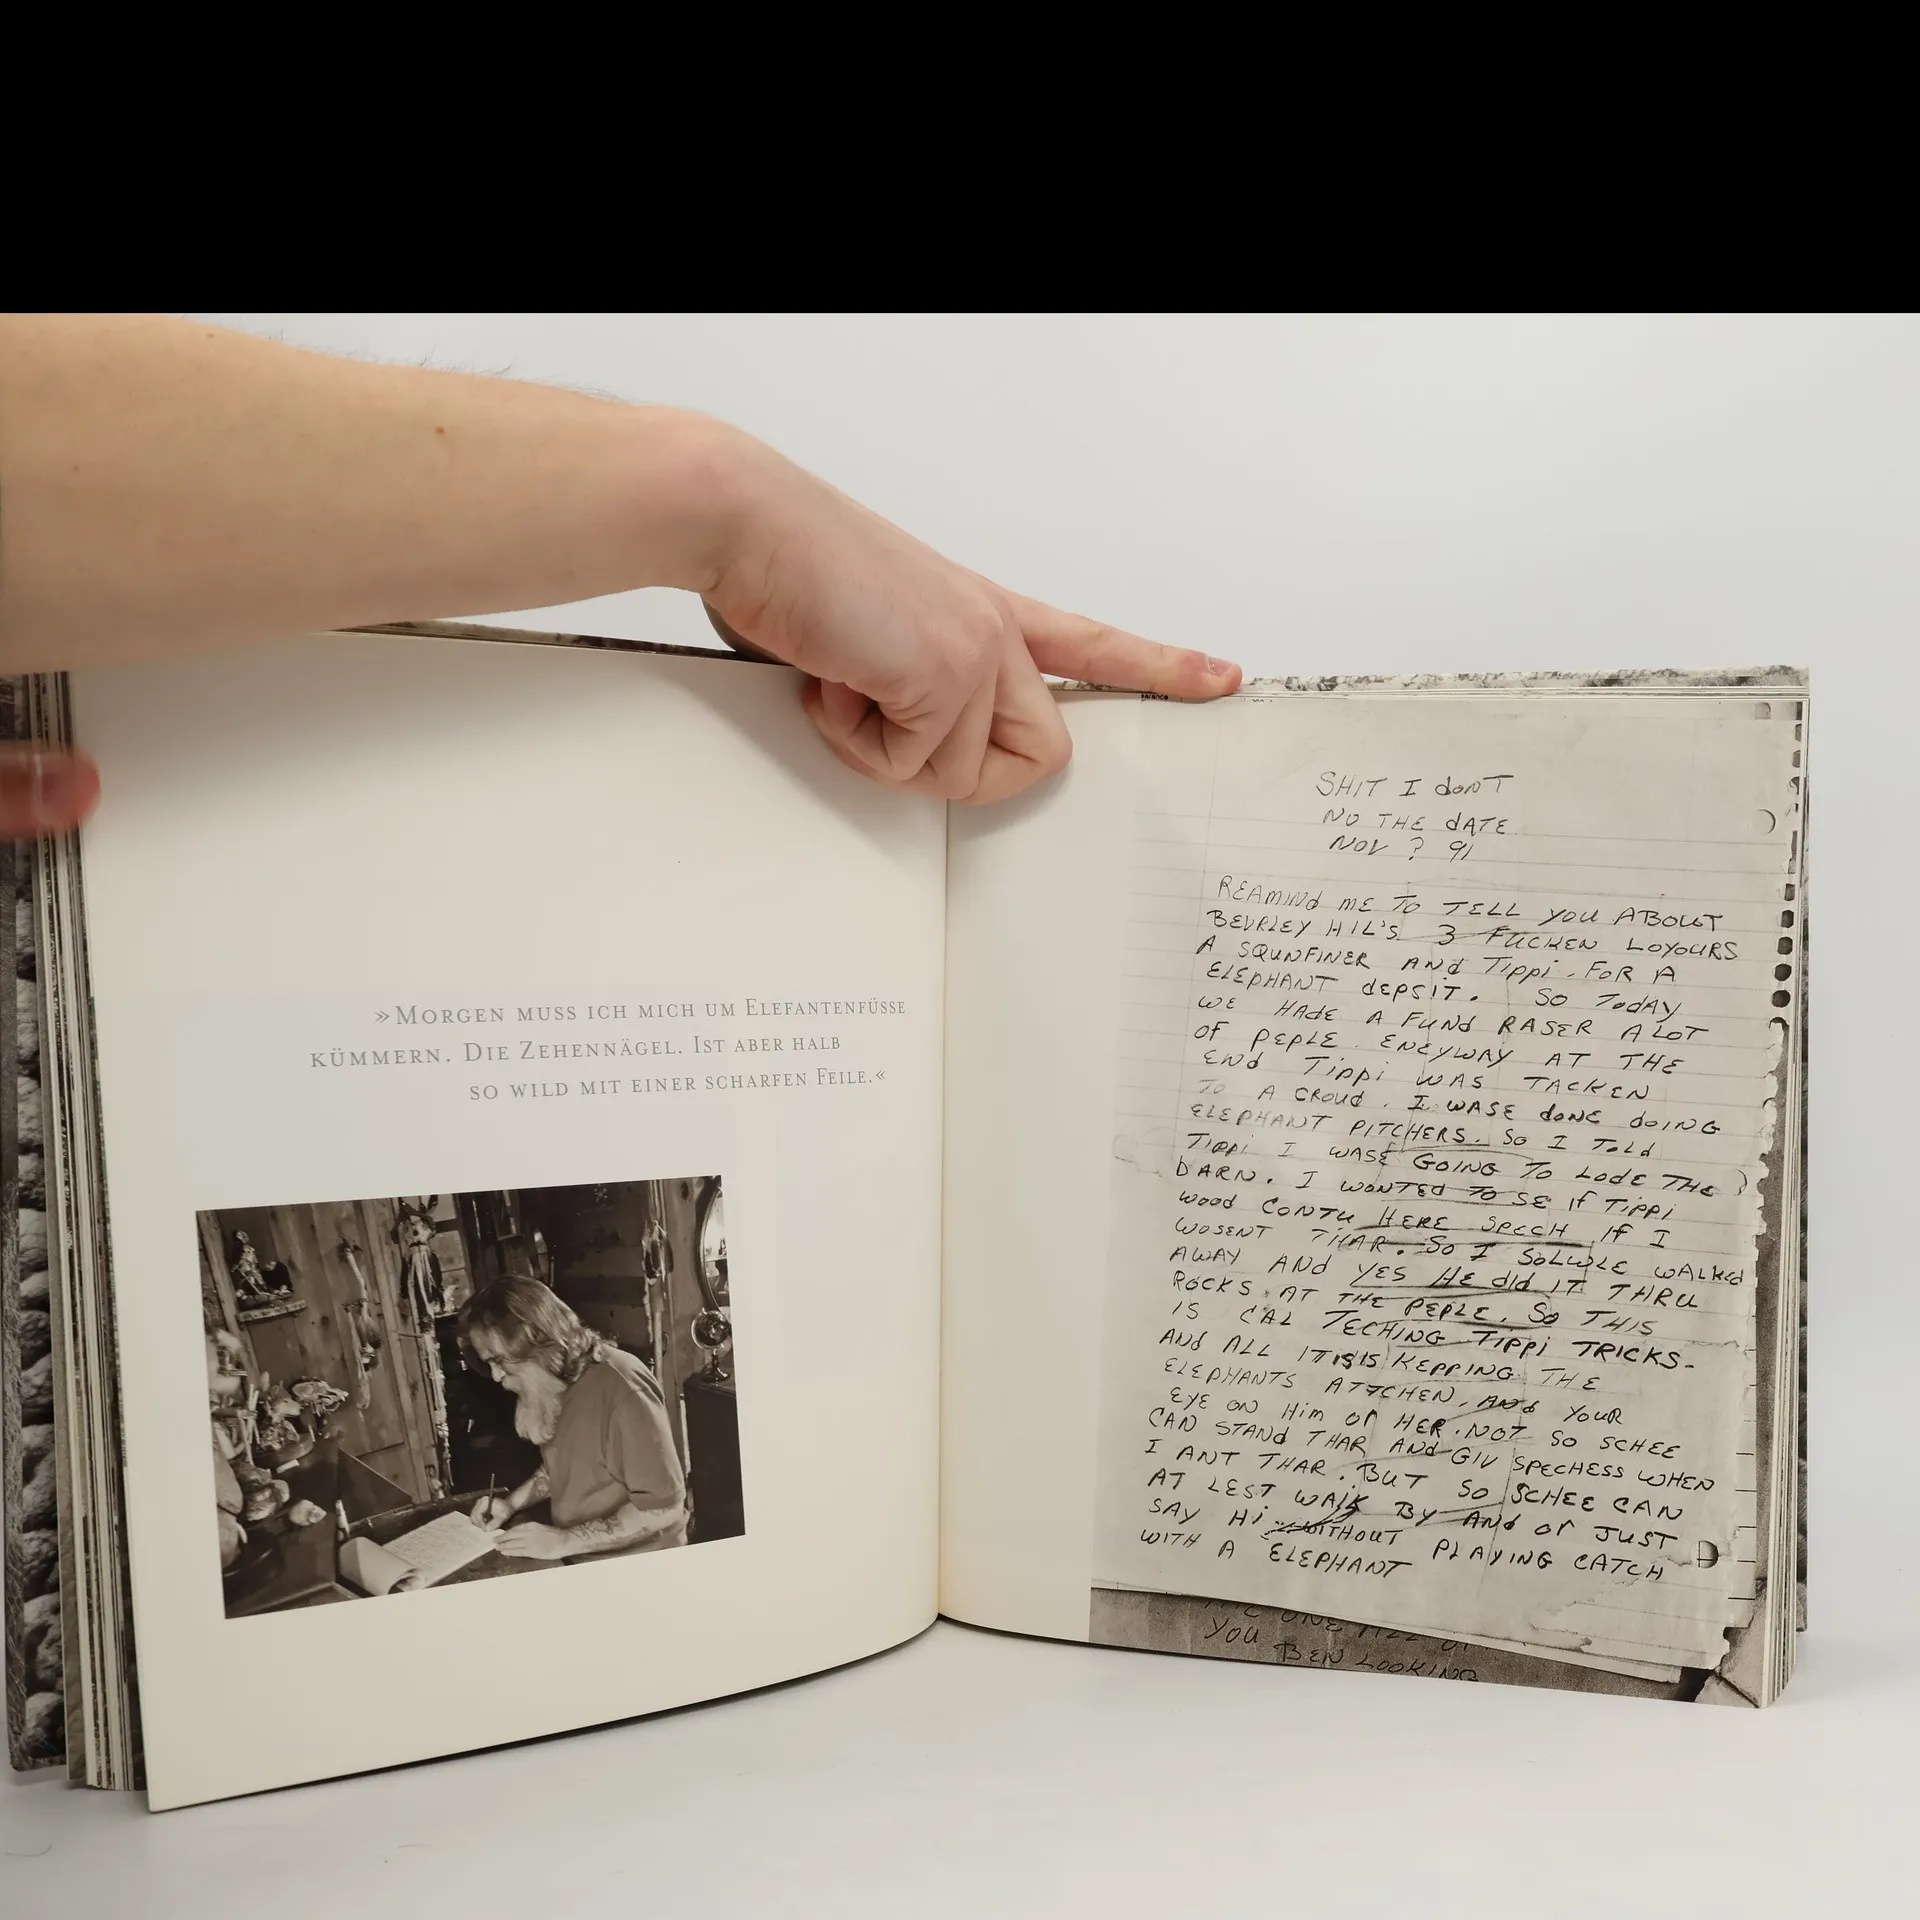 »Morgen muss ich mich um Elefantenfüsse
kümmern. Die Zehennägel. Ist aber halb
so wild mit einer scharfen Feile.«
SHIT I donT
NO THE dATE
NOV ? 91
REAMINd ME TO TELL YOU ABOUT
BEVRLEY HIL'S 3 FUCKEN LOYOURS
A SQUNFINER ANd Tippi. FOR A
ELEPHANT dEPSIT. SO TodAY
WE HAdE A FUNd RASER A LOT
OF PEPLE. ENEYWAY AT THE
ENd Tippi WAS TACKEN
TO A CROUd. I WASE doNE doING
ELEPHANT PITCHERS. SO I Told
Tippi I WASE GOING TO LODE THE
BARN. I WONTEd TO SE IF Tippi
Wood CONTU HERE SPECH IF I
WOSENT THAR. SO I SOLWLE WALKEd
AWAY ANd YES HE did IT THRU
ROCKS AT THE PEPLE. SO THIS
IS CAL TECHING Tippi TRICKS-
ANd ALL IT IS IS KEPPING THE
ELEPHANTS ATTCHEN, ANd YOUR
EYE ON HiM OR HER. NOT SO SCHEE
CAN STANd THAR ANd GIV SPECHESS WHEN
I ANT THAR. BUT SO SCHEE CAN
AT LEST WALK BY ANd OR JUST
SAY Hi WITHOUT PLAYING CATCH
WITH A ELEPHANT
THE ONE ALL
YOU BEN LOOKING